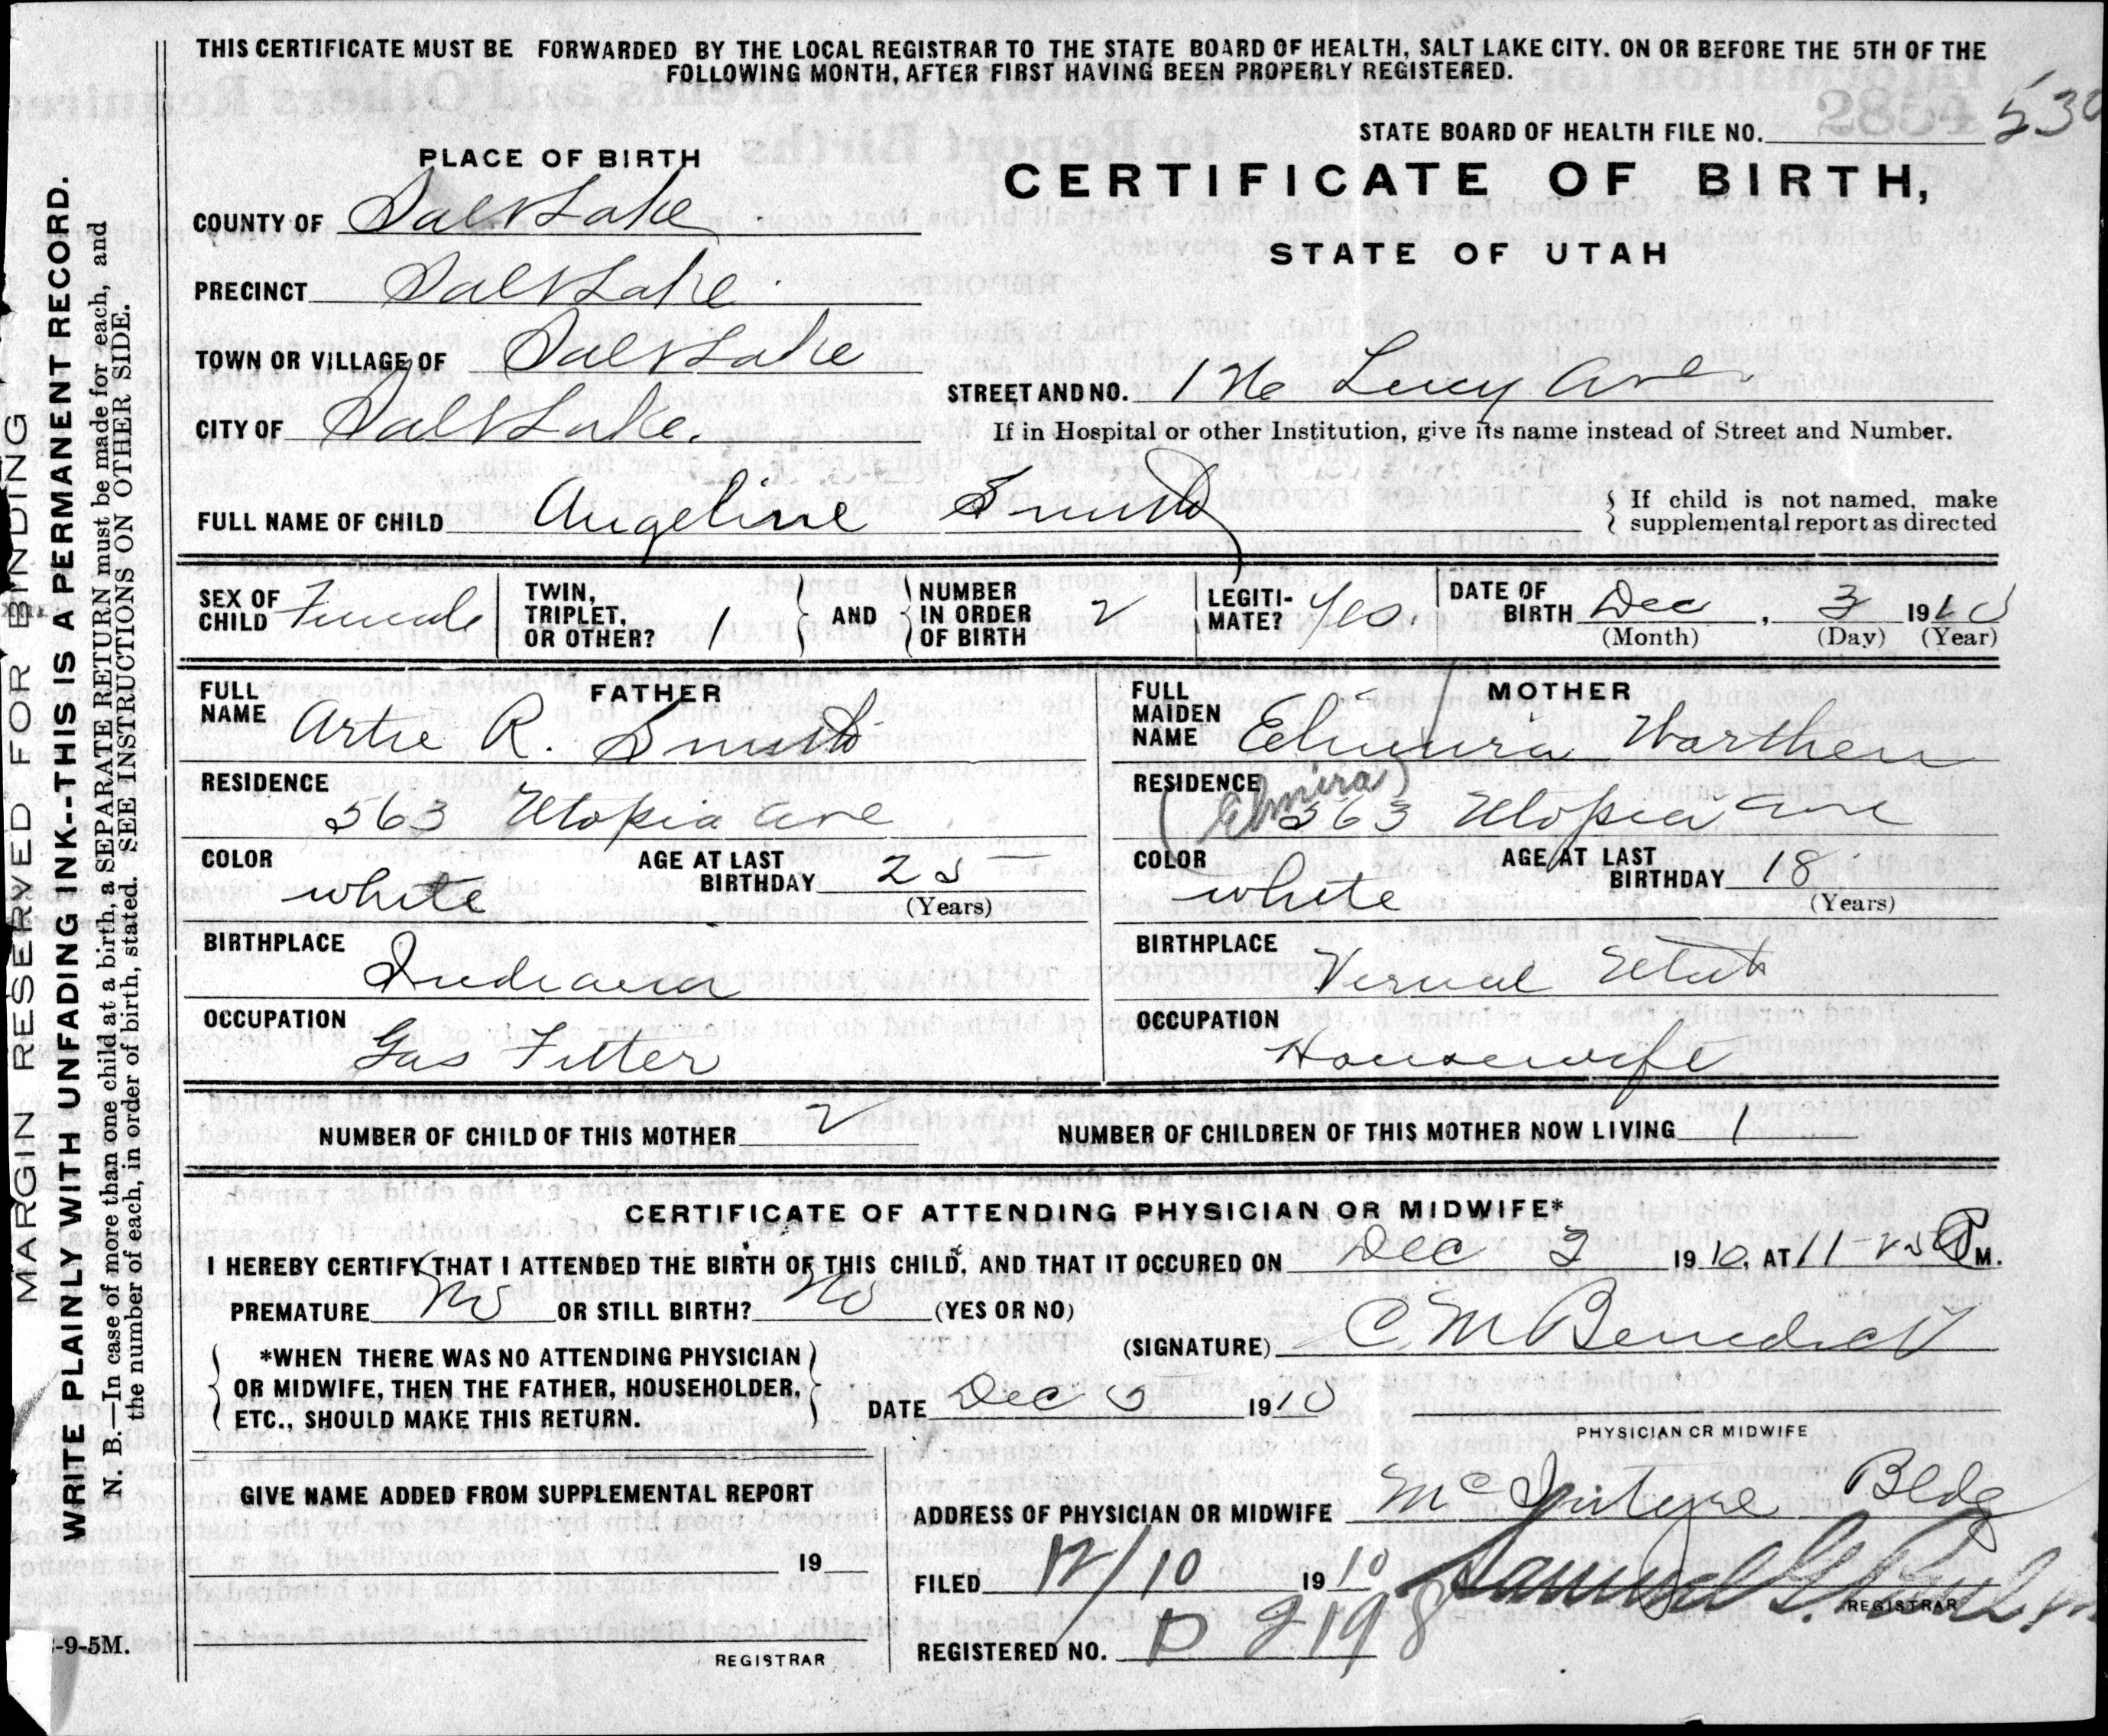 THIS CERTIFICATE MUST BE FORWARDED BY THE LOCAL REGISTRAR TO THE STATE BOARD OF HEALTH, SALT LAKE CITY. ON OR BEFORE THE 5TH OF THE
FOLLOWING MONTH, AFTER FIRST HAVING BEEN PROPERLY REGISTERED.
STATE BOARD OF HEALTH FILE NO. 2854 530
PLACE OF BIRTH
CERTIFICATE OF BIRTH,
STATE OF UTAH
COUNTY OF Salt Lake
PRECINCT Salt Lake
TOWN OR VILLAGE OF Salt Lake
STREET AND NO. Lucy Ave
CITY OF Salt Lake.
If in Hospital or other Institution, give its name instead of Street and Number.
FULL NAME OF CHILD Angeline Smith
If child is not named, make
supplemental report as directed
SEX OF CHILD Female
TWIN, TRIPLET, OR OTHER? 1
AND
NUMBER IN ORDER OF BIRTH 2
LEGITI-MATE? Yes.
DATE OF BIRTH Dec, 3 1910
(Month) (Day) (Year)
FATHER
FULL NAME Artie R. Smith
RESIDENCE
563 Utopia Ave
COLOR white
AGE AT LAST BIRTHDAY 25
(Years)
BIRTHPLACE
Indiana
OCCUPATION
Gas Fitter
MOTHER
FULL MAIDEN NAME Elmira Warthen
RESIDENCE
(Elmira) 563 Utopia Ave
COLOR white
AGE AT LAST BIRTHDAY 18
(Years)
BIRTHPLACE
Vernal Utah
OCCUPATION
Housewife
NUMBER OF CHILD OF THIS MOTHER 2
NUMBER OF CHILDREN OF THIS MOTHER NOW LIVING 1
CERTIFICATE OF ATTENDING PHYSICIAN OR MIDWIFE*
I HEREBY CERTIFY THAT I ATTENDED THE BIRTH OF THIS CHILD, AND THAT IT OCCURED ON Dec 3 1910, AT 11-25 P M.
PREMATURE No OR STILL BIRTH? No (YES OR NO)
(SIGNATURE) C. M Benedict
*WHEN THERE WAS NO ATTENDING PHYSICIAN
OR MIDWIFE, THEN THE FATHER, HOUSEHOLDER,
ETC., SHOULD MAKE THIS RETURN.
DATE Dec 5 1910
PHYSICIAN OR MIDWIFE
GIVE NAME ADDED FROM SUPPLEMENTAL REPORT
19
REGISTRAR
ADDRESS OF PHYSICIAN OR MIDWIFE McIntyre Bldg
FILED 12/10 1910 Samuel G. Paul
REGISTRAR
REGISTERED NO. P 2198
MARGIN RESERVED FOR BINDING
WRITE PLAINLY WITH UNFADING INK--THIS IS A PERMANENT RECORD.
N. B.—In case of more than one child at a birth, a SEPARATE RETURN must be made for each, and
the number of each, in order of birth, stated. SEE INSTRUCTIONS ON OTHER SIDE.
-9-5M.